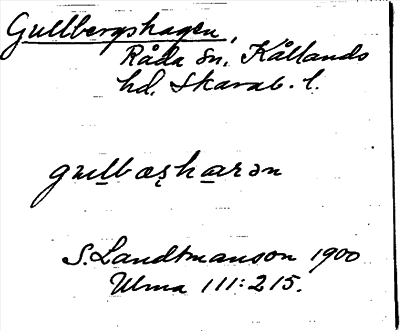 Gullbergshagen,
Råda sn. Kållands
hd. Skarab. l.
gul̲bæʂha̲rən
S. Landtmanson 1900
Ulma 111:215.